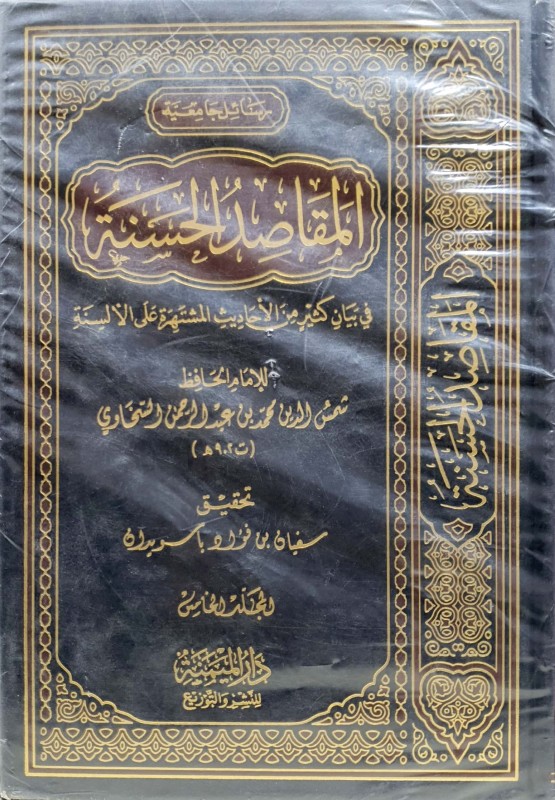 رسائل جامعية
المقاصد الحسنة
في بيان كثير من الأحاديث المشتهرة على الألسنة
للإمام الحافظ
شمس الدين محمد بن عبد الرحمن السخاوي
(ت ٩٠٢ هـ)
تحقيق
سفيان بن فؤاد باسويدان
المجلد الخامس
دار الميمنة
للنشر والتوزيع
المقاصد الحسنة